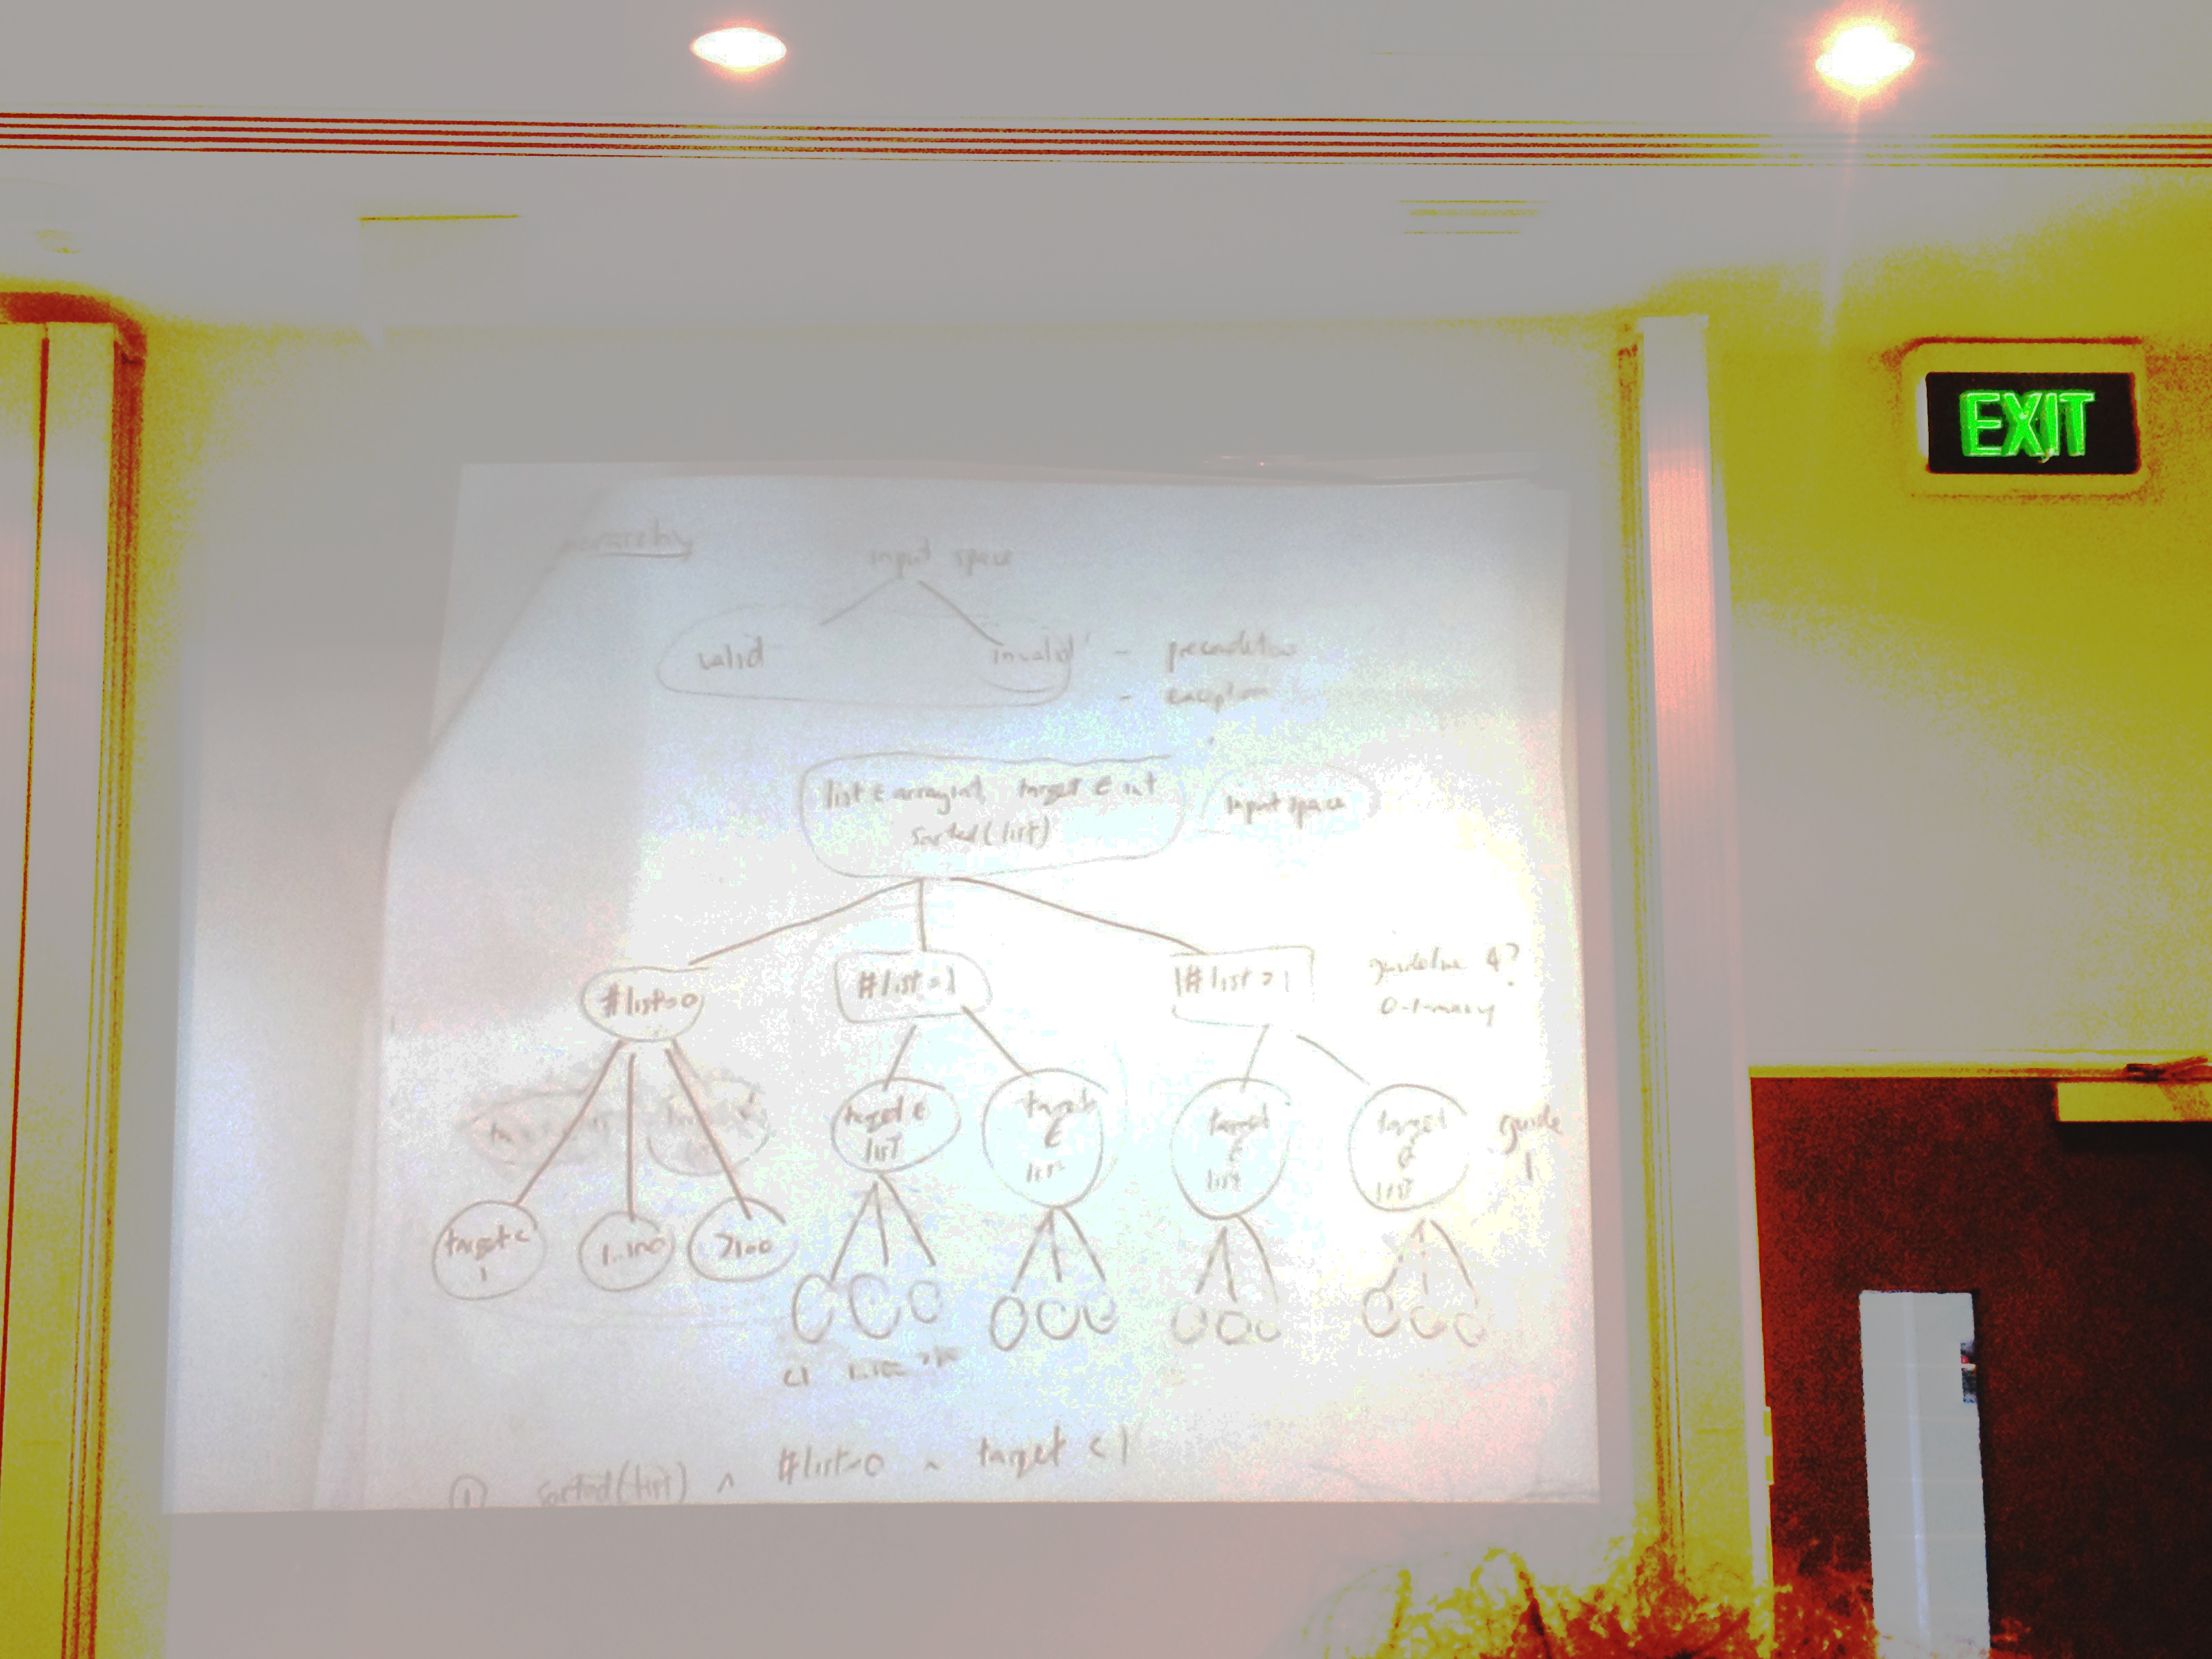 EXIT
input space
valid invalid - precondition
- exception
list ∈ arrayint, target ∈ int
sorted(list)
input space
#list=0 #list=1 #list>1
guideline 4?
0-1-many
target ∈ list
target ∈ list
target ∈ list
target ∉ list
guide 1
target < 1
1..100
>100
<1 1..100
① sorted(list) ^ #list=0 ^ target <1